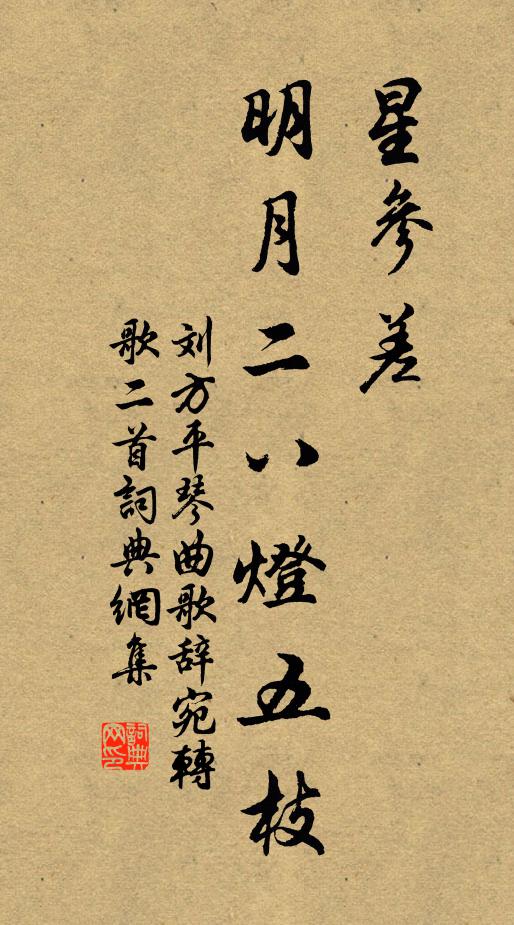 星參差
明月二八燈五枝
刘方平琴曲歌辞宛轉
歌二首詞典網集
詞典网印